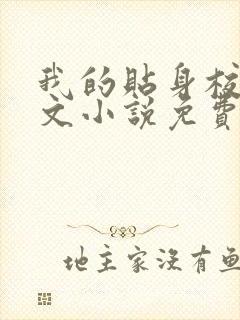 我的貼身校
文小說免費
地主家沒有魚